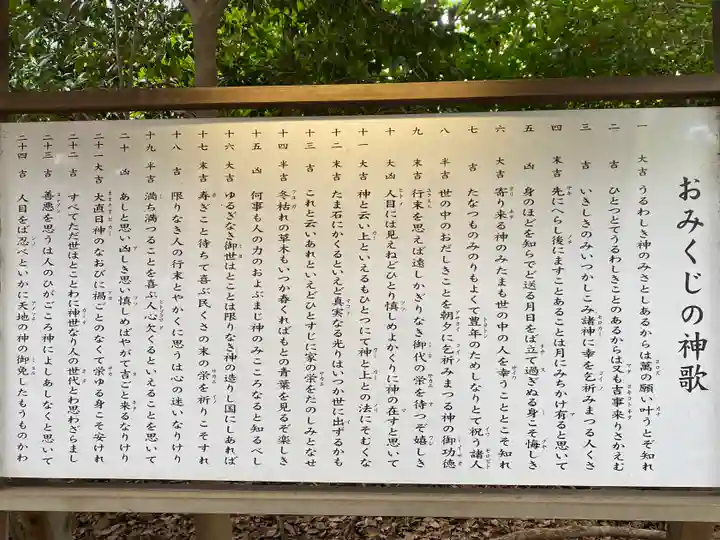 おみくじの神歌
一 大吉 うるわしき神のみさとしあるからは萬の願い叶うとぞ知れ
二 吉 ひとつとてうるわしきことのあるからは又も吉事来りさかえむ
三 吉 いきしきのみいつかしこみ諸神に幸を乞祈みまつる人くさ
四 末吉 先にへらし後にますことあることは月にみちかけ有ると思いて
五 凶 身のほどを知らでど送る月日をば立て過ぎぬる身こそ悔しき
六 大吉 寄り来る神のみたまも世の中の人を幸うこととこそ知れ
七 吉 たなつものみのりもよくて豊年のためしなりとて祝う諸人
八 半吉 世の中のおだしきことを朝夕に乞祈みまつる神の御功徳
九 末吉 行末を思えば遠しかぎりなき御代の栄を待つぞ嬉しき
十 大凶 人目には見えねどひとり慎しめよかくりに神の在すと思いて
十一 大吉 神と云い上といえるもひとつにて神と上との法にそむくな
十二 末吉 たま石にかくるといえど真実なる光りはいつか世に出ずるかも
十三 吉 これと云いあれといえどひとすじに家の栄をたのしみとなせ
十四 半吉 冬枯れの草木もいつか春くればもとの青葉を見るぞ楽しき
十五 凶 何事も人の力のおよぶまじ神のみこころなると知るべし
十六 大吉 ゆるぎなき御世はとことは限りなき神の造りし国にしあれば
十七 末吉 寿ぎごと待ちて喜ぶ民くさの末の栄を祈りこそすれ
十八 吉 限りなき人の行末とやかくに思うは心の迷いなりけり
十九 半吉 満ち満つることを喜ぶ人心欠くるといえることを思いて
二十 凶 あしと思い凶しき思い慎しめばやがて吉ごと来るなりけり
二十一 大吉 大直日神のなおびに禍ごとのなくて栄ゆる身こそ安けれ
二十二 吉 すべてただ世はとことわに神世なり人の世代とわ思わざらまし
二十三 吉 善悪を思うは人のひがごころ神によしあしなくと思いて
二十四 吉 人目をば忍べといかに天地の神の御免したもうものかわ